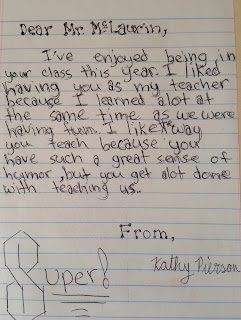 Dear Mr. McLaurin,
I've enjoyed being in
your class this year. I liked
having you as my teacher
because I learned alot at
the same time as we were
having fun. I like the way
you teach because you
have such a great sense of
humor, but you get alot done
with teaching us.
From,
Kathy Pierson
Super!